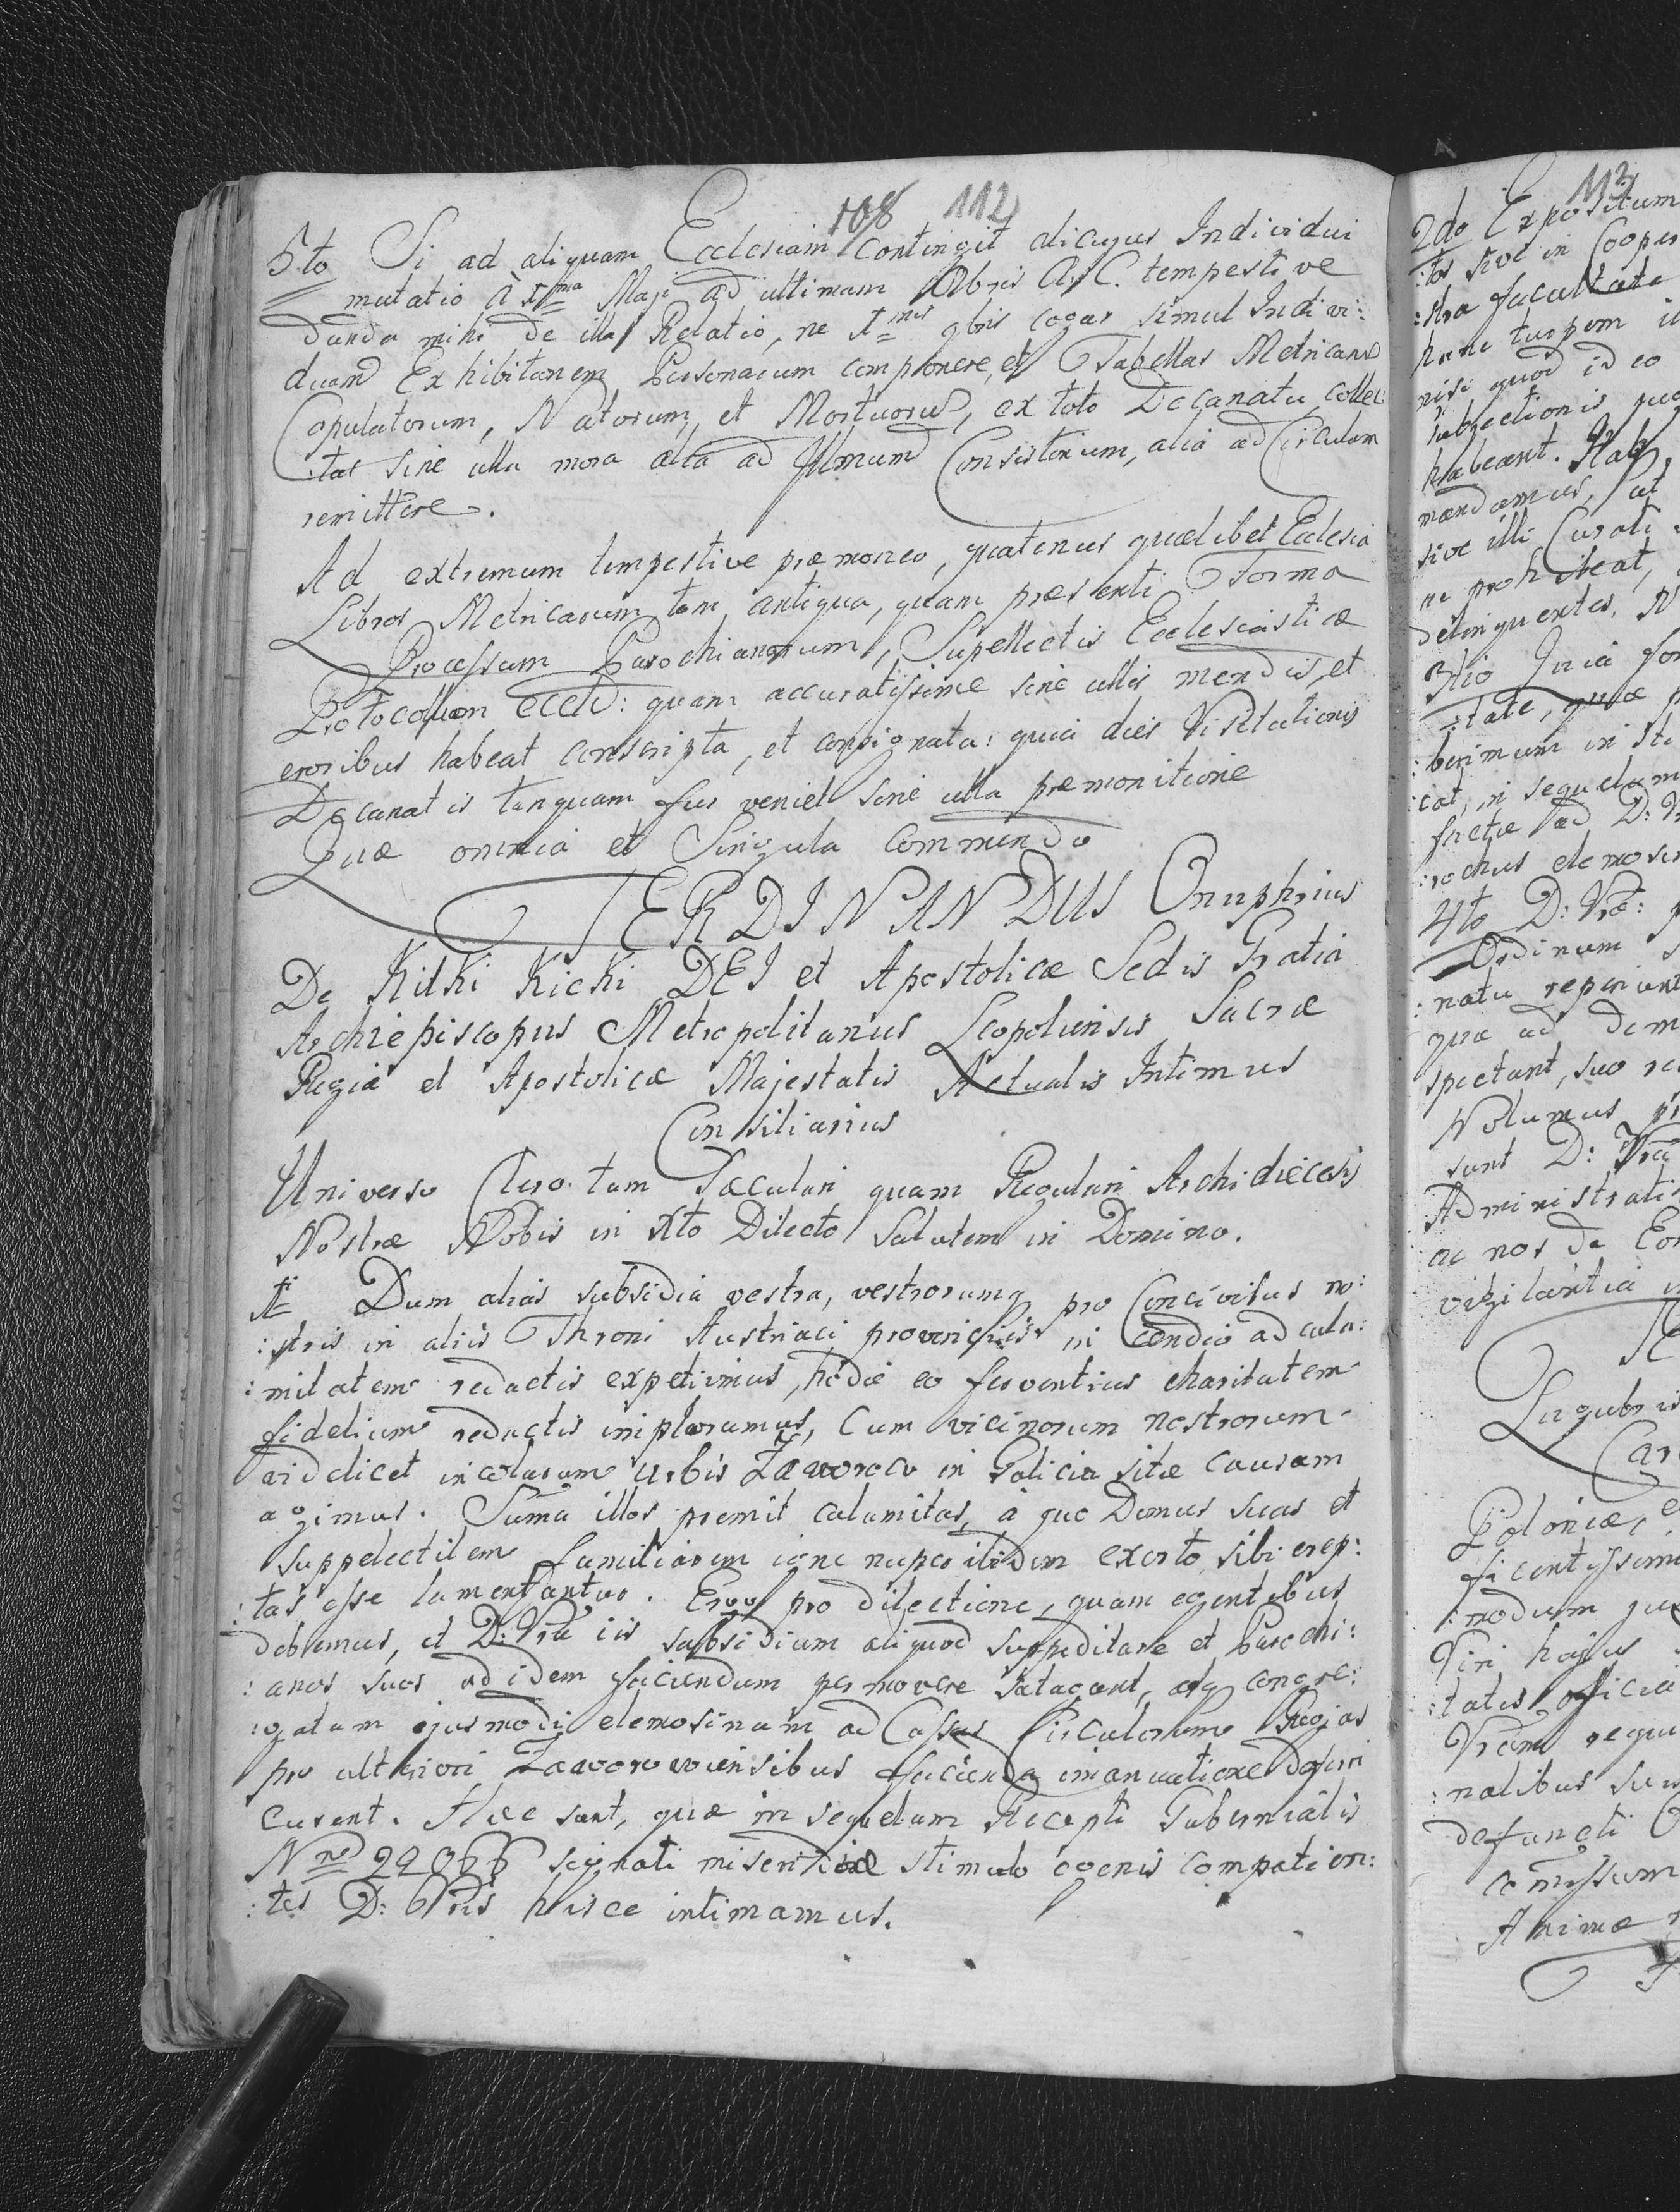 108 112
5.to Si ad aliquam Ecclesiam contingit alicujus Individui
mutatio à 1ma Maji ad ultimam 8bris A. C. tempestive
danda mihi de illa Relatio, ne 1mis 9bris cogar simul Indivi:
duam Exhibitionem Personarum componere, et Tabellas Metricarum
Copulatorum, Natorum, et Mortuorum, ex toto Decanatu collec:
:tas sine ulla mora alia ad Illmum Consistorium, alia ad Circulum
remittere.
Ad extremum tempestive præmoneo, quatenus quælibet Ecclesia
Libros Metricarum tam antiqua, quam præsenti Forma
Processum Parochianorum, Supellectis Ecclesiasticæ
Protocollum eccl: quam accuratissime sine ullis mendis, et
erroribus habeat conscripta, et consignata: quia dies Visitationis
Decanatis tanquam fur veniet sine ulla præmonitione
Quæ omnia et Singula commendo
FERDINANDUS Onuphrius
De Kitki Kicki DEI et Apostolicæ Sedis Gratia
Archiepiscopus Metropolitanus Leopoliensis Sacræ
Regiæ et Apostolicæ Majestatis Actualis Intimus
Consiliarius
Universo Clero tam Sæculari quam Regulari Archidiecesis
Nostræ Nobis in Xto Dilecto Salutem in Domino.
Dum alias subsidia vestra, vestrorumq pro Concivibus no:
:stris in aliis Throni Austriaci provinciis incendio ad cala:
:mitatem redactis expetiimus, hodie eo ferventius charitatem
fidelium reductis imploramus, Cum vicinorum nostrorum
videlicet incolarum Urbis Jaworow in Galicia sitæ causam
agimus. Suma illos premit calamitas, à quo Domus suas et
suppelectilem familiarem igne nuper ibidem exorto sibi erep:
:tas esse lamentantur. Ergo pro dilectione, quam egentibus
debemus, et D: Vræ iis subsidium aliquod suppeditare et Parochi:
:anos suos ad idem faciendum permovere satagant, atq congre:
:gatam ejusmodi elemosinam ad Cassas Circulorum Regias
pro ulteriori Jaworowiensibus facienda imanuatione deferri
curent. Hæc sunt, quæ in sequelam Recepti Gubernialis
Nro signati stimulo egenis compatien:
:tes D: Vris hisce intimamus.
113
2do Expositum
:tos sive in Cooper
:stra facultate
hunc turpem
nisi quod id eo
subjectionis
habeant.
mandamus, ut
sive illi Curati
ne prohibeat,
delinquentes, N
3tio Juxia
:tate, quæ
:berimum in
:cat, in sequelam
factæ ad D:
:rochus elemosin
4to D: Vræ:
Ordinum
:natu reperiunt
quæ ad dom
spectant, suo
Nolumus
sunt D: Vræ
Administrati
ac nos de
vigilantia
Lugubris
Poloniæ,
:modum
Viri hujus
:tatis officia
Vram requi
:nalibus
defuncti
comissum
Animæ